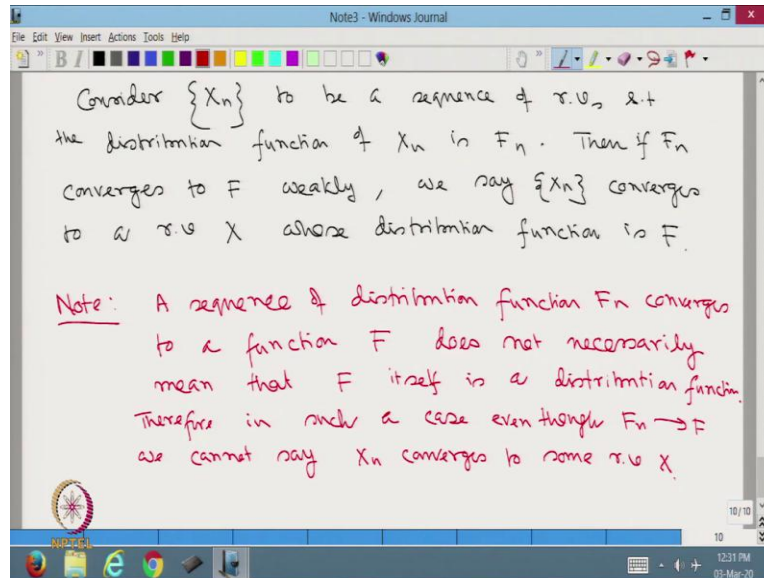 Note3 - Windows Journal
File Edit View Insert Actions Tools Help
Consider {Xn} to be a sequence of r.v.s s.t
the distribution function of Xn is Fn. Then if Fn
converges to F weakly, we say {Xn} converges
to a r.v X whose distribution function is F.
Note: A sequence of distribution function Fn converges
to a function F does not necessarily
mean that F itself is a distribution function.
Therefore in such a case even though Fn → F
we cannot say Xn converges to some r.v X.
NPTEL
10/10
10
12:31 PM
03-Mar-20